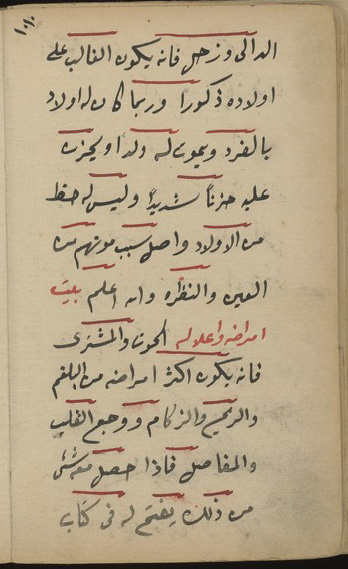 ١٠١٠
الدالى وزحل فانه يكون الغالب على
اولاده ذكورا وربما كان له اولاد
بالفرد ويموت له ولدا ويحزن
عليه حزناً شديداً وليس له حظ
من الاولاد واصل سبب موتهم من
العين والنظره والله اعلم بيت
امراضه واعلاله الحوت والمشترى
فانه يكون اكثر امراضه من البلغم
والريح والزكام ووجع القلب
والمفاصل فاذا حصل معه شئ
من ذلك يفتح له فى كتاب